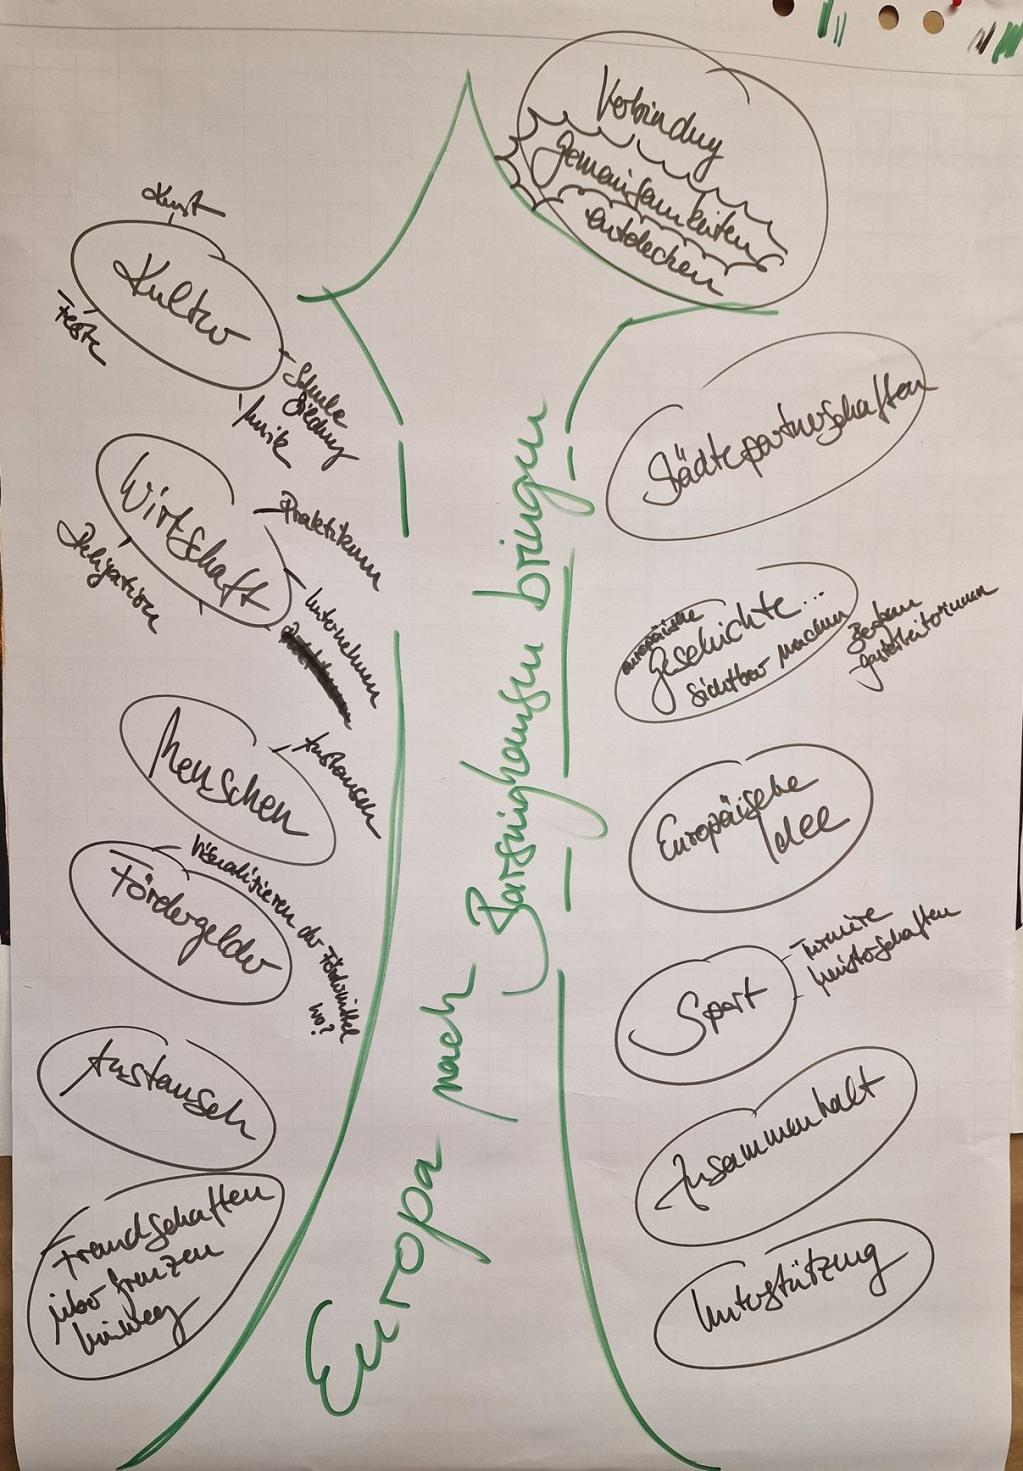 Verbindung
Gemeinsamkeiten
entdecken
Kunst
Kultur
Feste
Schule
Bildung
Musik
Wirtschaft
Praktikum
Delegation
Unternehmen
Menschen
Austausch
Fördergelder
Visualisieren der Fördermittel
wo?
Austausch
Freundschaften
über Grenzen
hinweg
Europa nach Barsinghausen bringen
Städtepartnerschaften
europäische
Geschichte...
Sichtbar machen
Gastarbeiterinnen
Europäische
Idee
Sport
Turniere
Meisterschaften
Zusammenhalt
Unterstützung